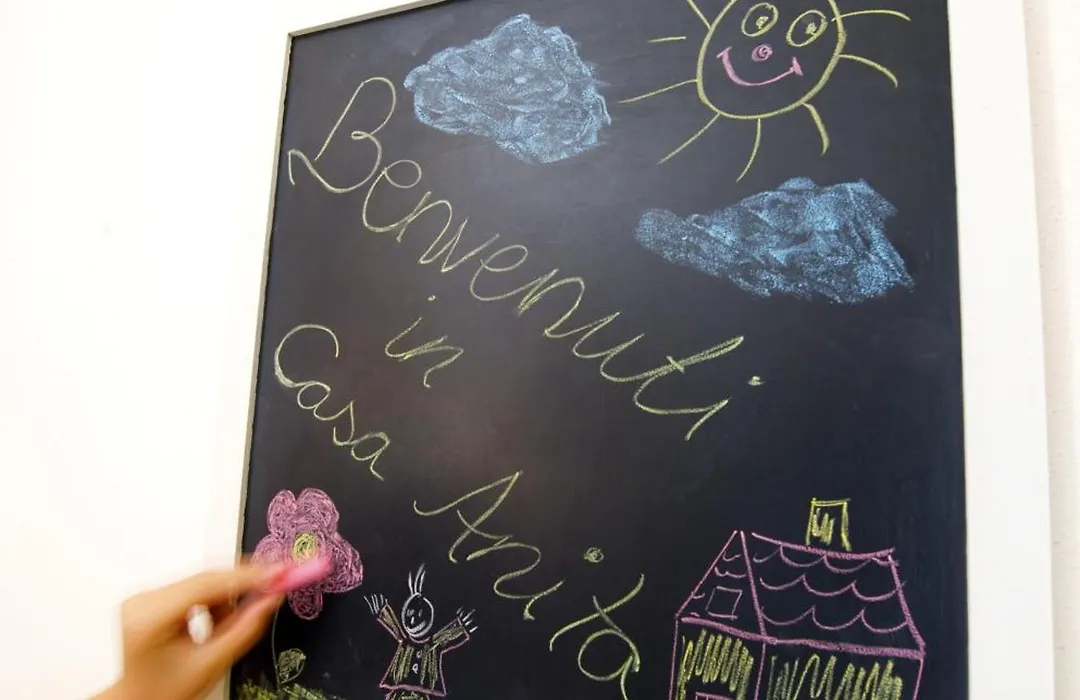 Benvenuti
in
Casa Anita